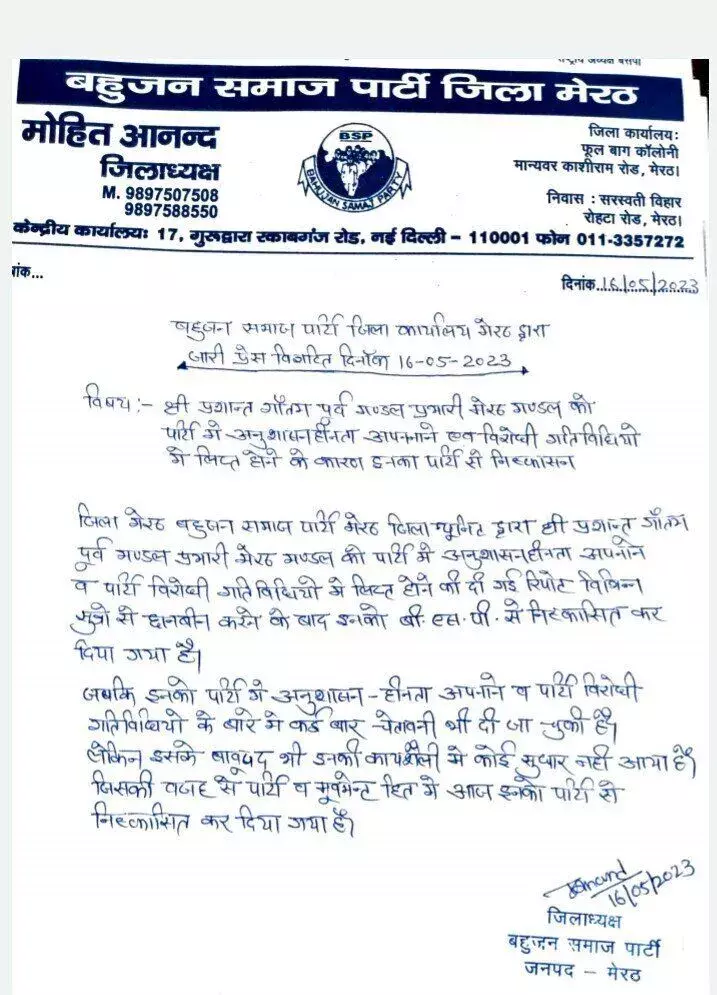 राष्ट्रीय अध्यक्ष बसपा
बहुजन समाज पार्टी जिला मेरठ
मोहित आनन्द
जिलाध्यक्ष
M. 9897507508
9897588550
BSP
BAHUJAN SAMAJ PARTY
जिला कार्यालयः
फूल बाग कॉलोनी
मान्यवर काशीराम रोड, मेरठ।
निवास : सरस्वती विहार
रोहटा रोड, मेरठ।
केन्द्रीय कार्यालयः 17, गुरूद्वारा रकाबगंज रोड, नई दिल्ली – 110001 फोन 011-3357272
ांक...
दिनांक...16/05/2023
बहुजन समाज पार्टी जिला कार्यालय मेरठ द्वारा
जारी प्रेस विज्ञप्ति दिनाँक 16-05-2023
विषय :- श्री प्रशान्त गौतम पूर्व मण्डल प्रभारी मेरठ मण्डल को
पार्टी मे अनुशासनहीनता अपनाने एवं विरोधी गतिविधियो
मे लिप्त होने के कारण इनका पार्टी से निष्कासन
जिला मेरठ बहुजन समाज पार्टी मेरठ जिला यूनिट द्वारा श्री प्रशान्त गौतम
पूर्व मण्डल प्रभारी मेरठ मण्डल को पार्टी मे अनुशासनहीनता अपनाने
व पार्टी विरोधी गतिविधियो मे लिप्त होने की दी गई रिपोट विभिन्न
सुत्रो से छानबीन करने के बाद इनको बी. एस. पी. से निष्कासित कर
दिया गया है।
जबकि इनको पार्टी मे अनुशासन-हीनता अपनाने व पार्टी विरोधी
गतिविधियो के बारे मे कई बार चेतावनी भी दी जा चुकी है।
लेकिन इसके बावजूद भी इनकी कार्यशैली मे कोई सुधार नहीं आया है।
जिसकी वजह से पार्टी व मूवमेन्ट हित मे आज इनको पार्टी से
निष्कासित कर दिया गया है।
16/05/2023
जिलाध्यक्ष
बहुजन समाज पार्टी
जनपद – मेरठ